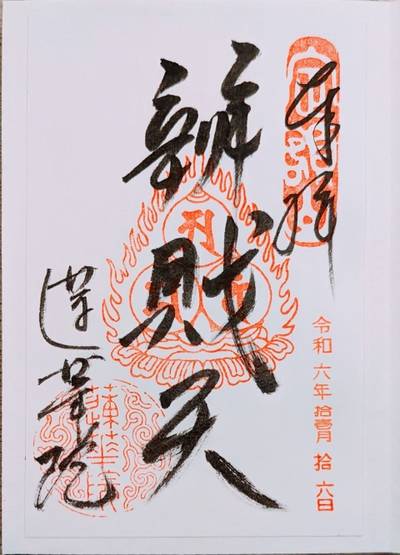 奉拝
令和六年拾壹月拾六日
辨財天
蓮華院
蓮華院